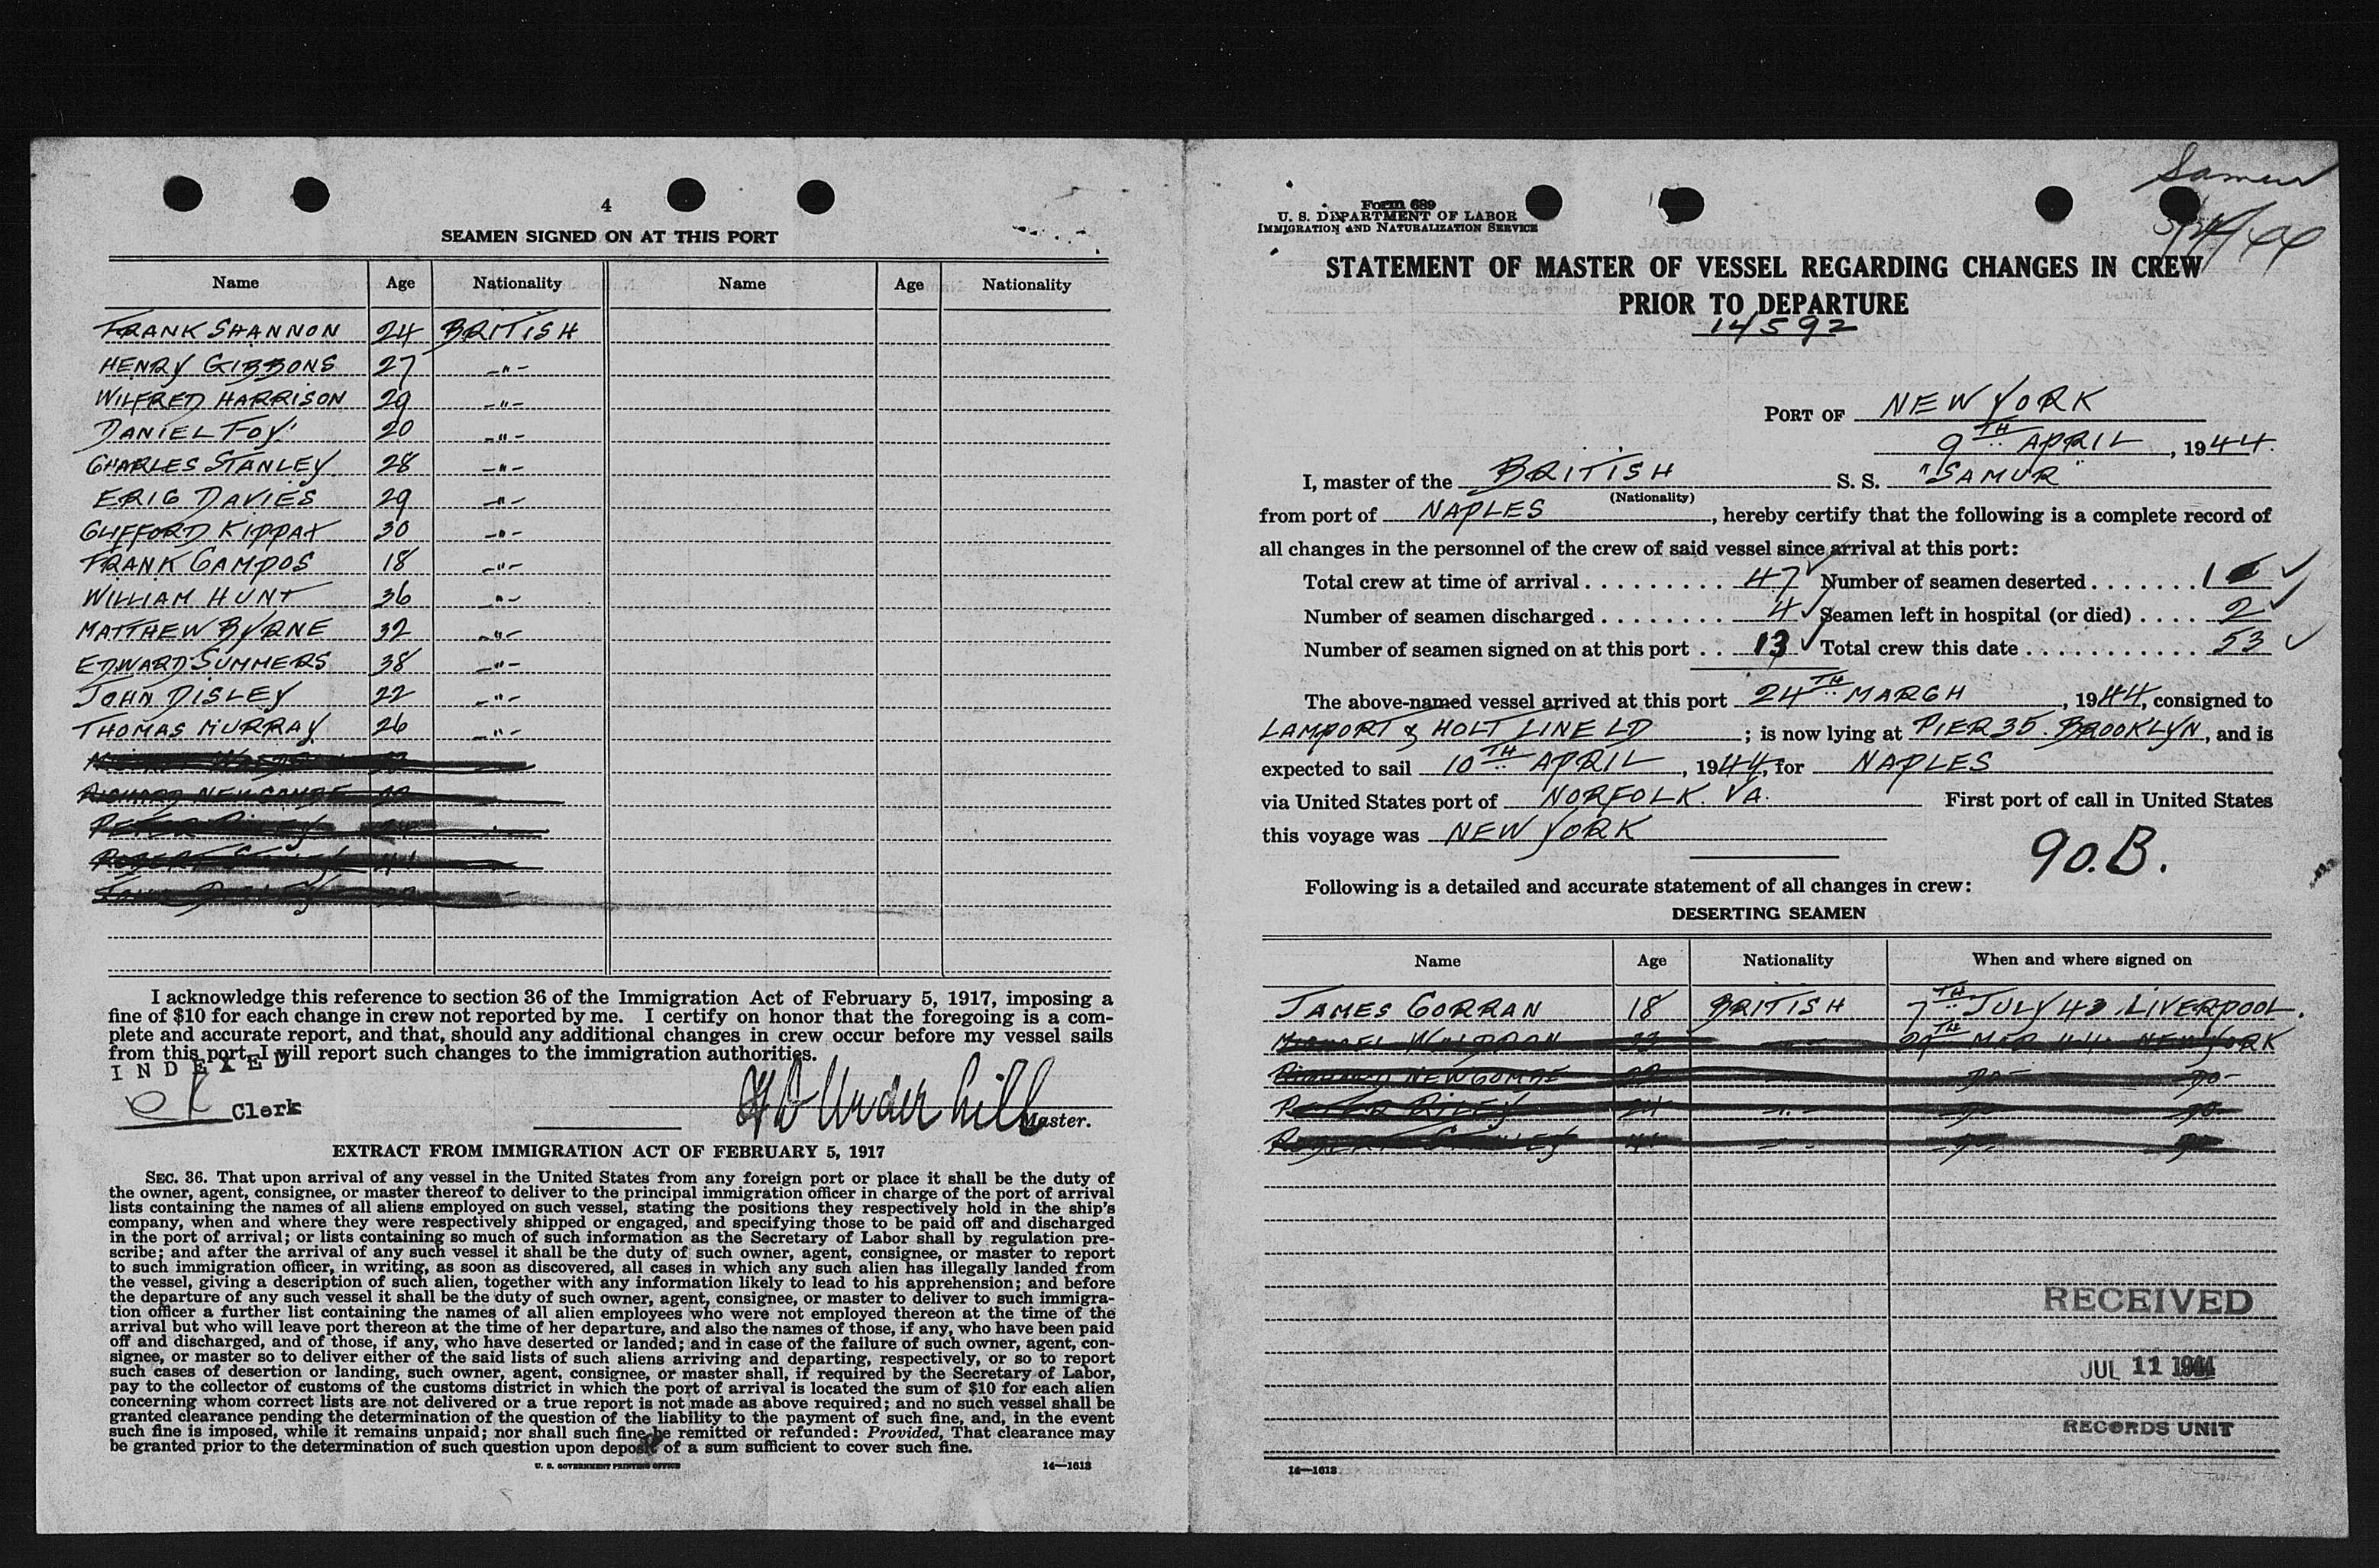 4
SEAMEN SIGNED ON AT THIS PORT
Name Age Nationality Name Age Nationality
FRANK SHANNON 24 BRITISH
HENRY GIBBONS 27 -"-
WILFRED HARRISON 29 -"-
DANIEL FOY 20 -"-
CHARLES STANLEY 28 -"-
ERIC DAVIES 29 -"-
CLIFFORD KIPPAX 30 -"-
FRANK CAMPOS 18 -"-
WILLIAM HUNT 36 -"-
MATTHEW BYRNE 32 -"-
EDWARD SUMMERS 38 -"-
JOHN DISLEY 22 -"-
THOMAS MURRAY 26 -"-
RICHARD NEWCOMBE 22
PETER RILEY 24
I acknowledge this reference to section 36 of the Immigration Act of February 5, 1917, imposing a
fine of $10 for each change in crew not reported by me. I certify on honor that the foregoing is a com-
plete and accurate report, and that, should any additional changes in crew occur before my vessel sails
from this port, I will report such changes to the immigration authorities.
INDEXED
Clerk
Underhill
Master.
EXTRACT FROM IMMIGRATION ACT OF FEBRUARY 5, 1917
SEC. 36. That upon arrival of any vessel in the United States from any foreign port or place it shall be the duty of
the owner, agent, consignee, or master thereof to deliver to the principal immigration officer in charge of the port of arrival
lists containing the names of all aliens employed on such vessel, stating the positions they respectively hold in the ship's
company, when and where they were respectively shipped or engaged, and specifying those to be paid off and discharged
in the port of arrival; or lists containing so much of such information as the Secretary of Labor shall by regulation pre-
scribe; and after the arrival of any such vessel it shall be the duty of such owner, agent, consignee, or master to report
to such immigration officer, in writing, as soon as discovered, all cases in which any such alien has illegally landed from
the vessel, giving a description of such alien, together with any information likely to lead to his apprehension; and before
the departure of any such vessel it shall be the duty of such owner, agent, consignee, or master to deliver to such immigra-
tion officer a further list containing the names of all alien employees who were not employed thereon at the time of the
arrival but who will leave port thereon at the time of her departure, and also the names of those, if any, who have been paid
off and discharged, and of those, if any, who have deserted or landed; and in case of the failure of such owner, agent, con-
signee, or master so to deliver either of the said lists of such aliens arriving and departing, respectively, or so to report
such cases of desertion or landing, such owner, agent, consignee, or master shall, if required by the Secretary of Labor,
pay to the collector of customs of the customs district in which the port of arrival is located the sum of $10 for each alien
concerning whom correct lists are not delivered or a true report is not made as above required; and no such vessel shall be
granted clearance pending the determination of the question of the liability to the payment of such fine, and, in the event
such fine is imposed, while it remains unpaid; nor shall such fine be remitted or refunded: Provided, That clearance may
be granted prior to the determination of such question upon deposit of a sum sufficient to cover such fine.
U. S. GOVERNMENT PRINTING OFFICE 14—1613
Samur
Form 689
U. S. DEPARTMENT OF LABOR
IMMIGRATION AND NATURALIZATION SERVICE
STATEMENT OF MASTER OF VESSEL REGARDING CHANGES IN CREW
PRIOR TO DEPARTURE
14592
PORT OF NEW YORK
9TH APRIL, 1944.
I, master of the BRITISH S. S. "SAMUR"
(Nationality)
from port of NAPLES, hereby certify that the following is a complete record of
all changes in the personnel of the crew of said vessel since arrival at this port:
Total crew at time of arrival 47 Number of seamen deserted 1
Number of seamen discharged 4 Seamen left in hospital (or died) 2
Number of seamen signed on at this port 13 Total crew this date 53
The above-named vessel arrived at this port 24TH MARCH, 1944, consigned to
LAMPORT & HOLT LINE LD; is now lying at PIER 35. BROOKLYN, and is
expected to sail 10TH APRIL, 1944, for NAPLES
via United States port of NORFOLK. VA. First port of call in United States
this voyage was NEW YORK
90.B.
Following is a detailed and accurate statement of all changes in crew:
DESERTING SEAMEN
Name Age Nationality When and where signed on
JAMES CORRAN 18 BRITISH 7TH JULY 43 LIVERPOOL.
MICHAEL WALDRON 23 NEW YORK
RICHARD NEWCOMBE 22 DO DO
PETER RILEY 24 DO DO
RECEIVED
JUL 11 1944
RECORDS UNIT
14—1613